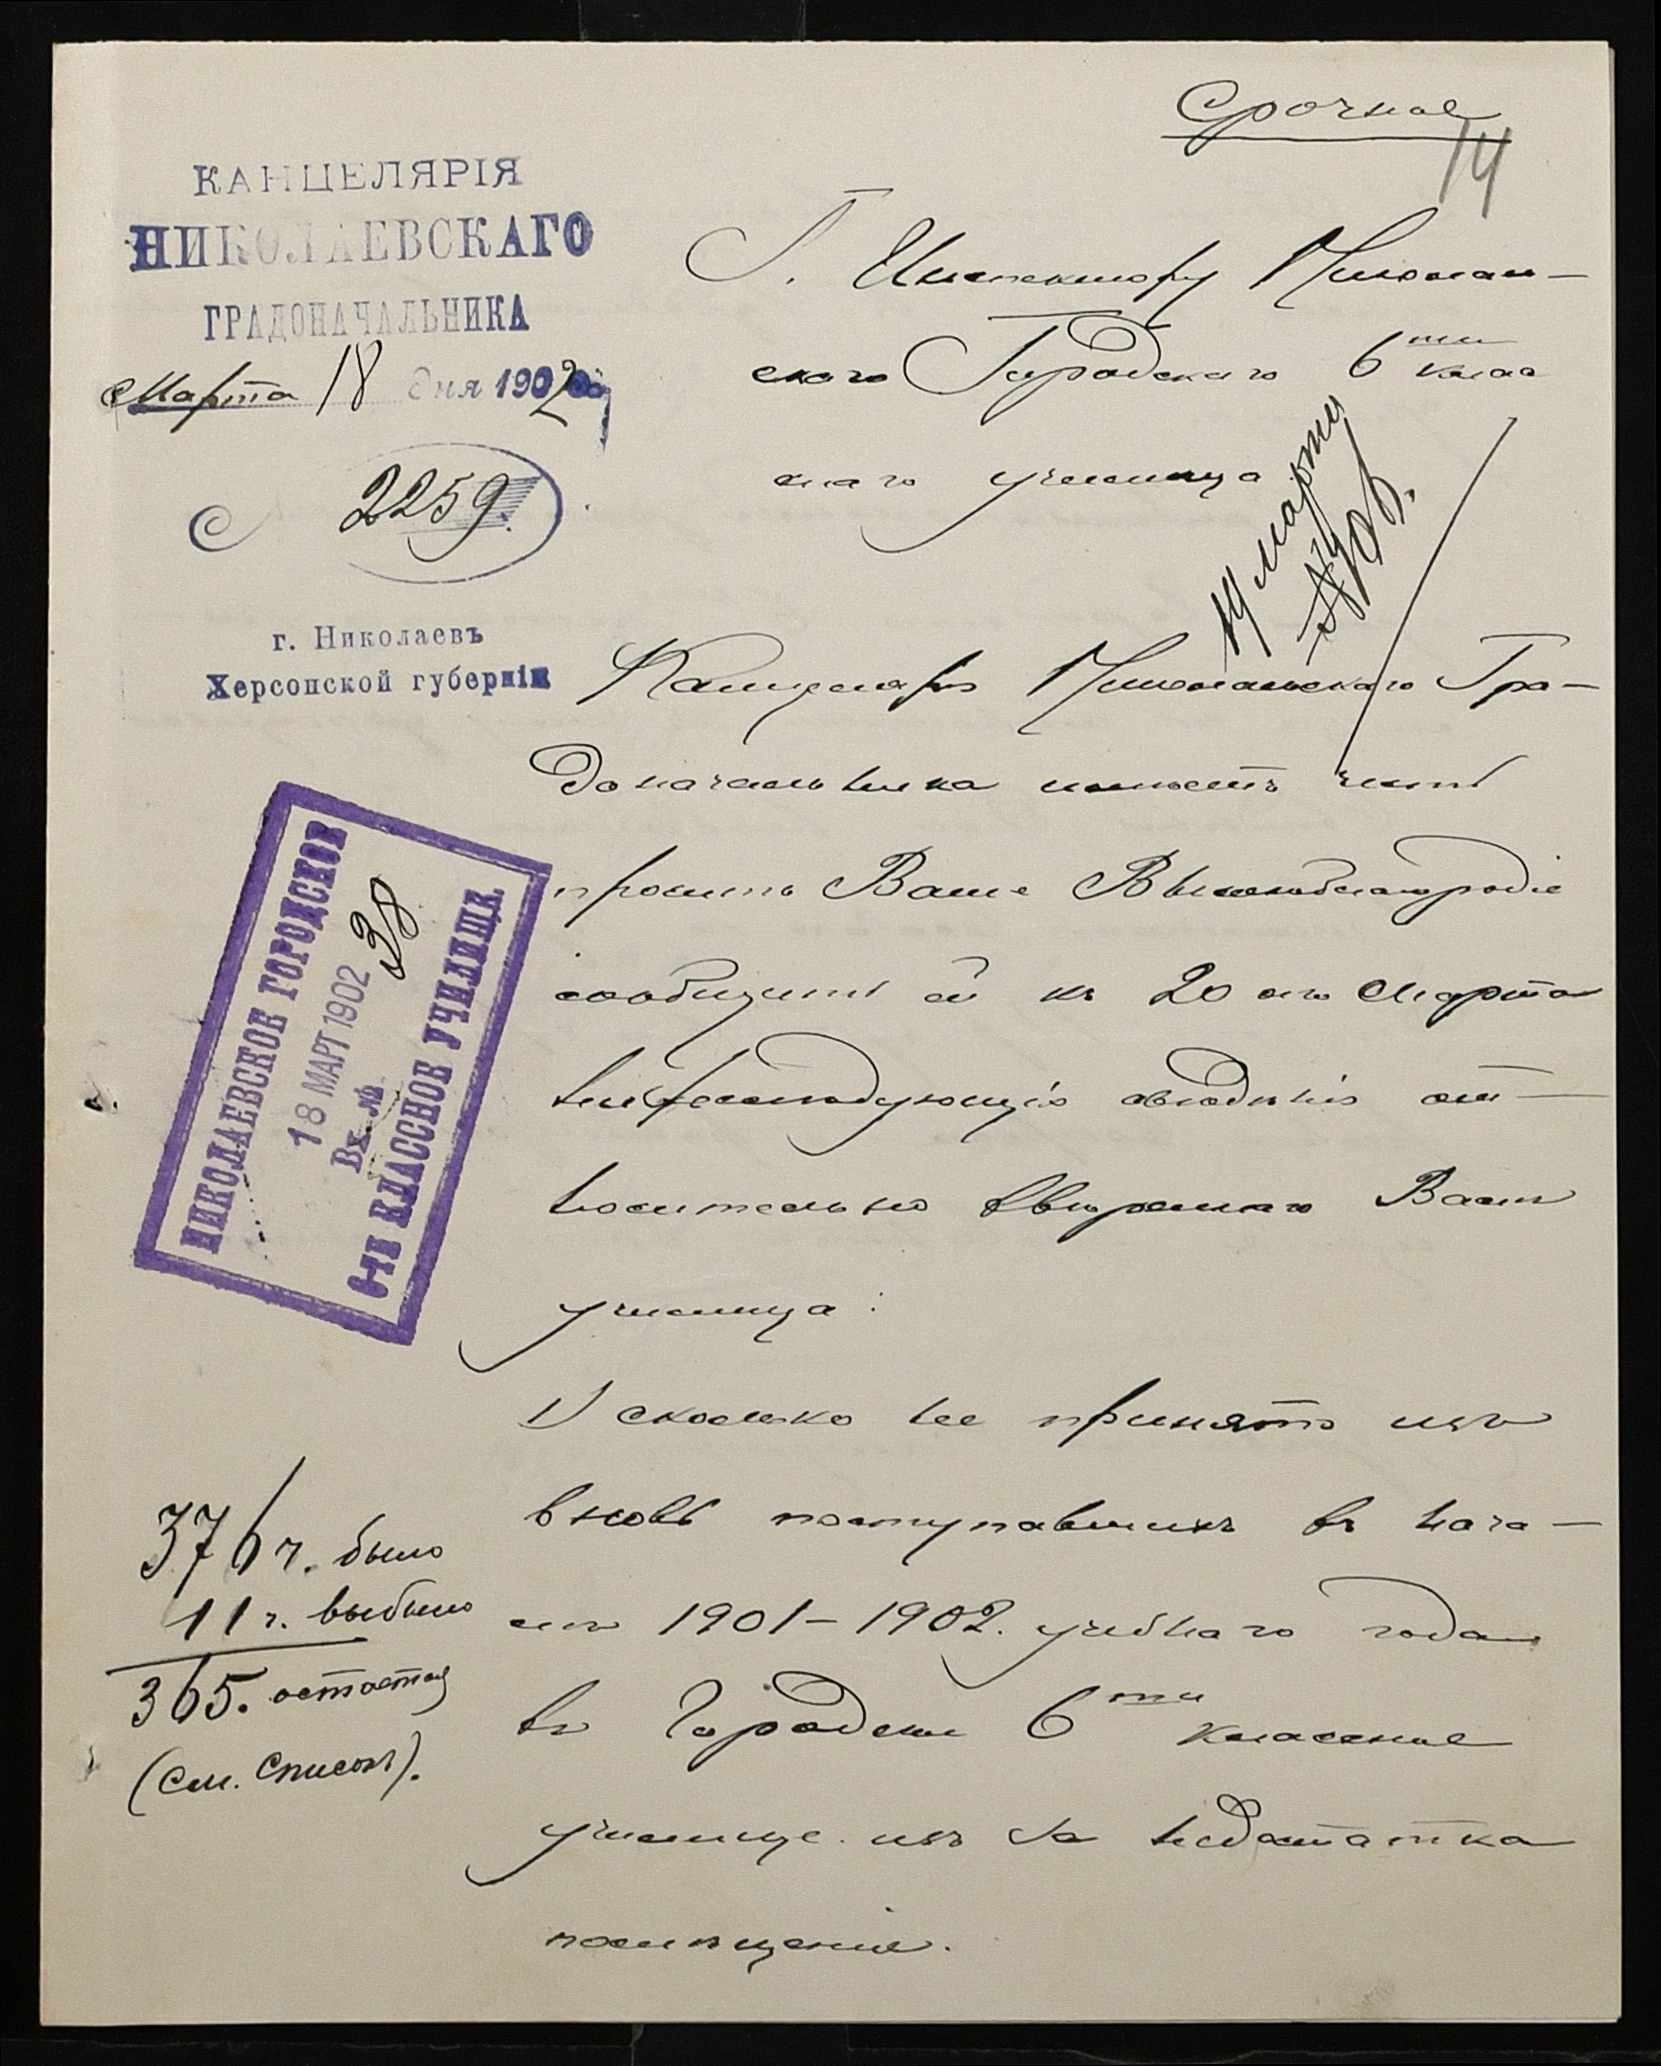 Срочное
14
КАНЦЕЛЯРІЯ
НИКОЛАЕВСКАГО
ГРАДОНАЧАЛЬНИКА
Марта 18 дня 1902
2259.
г. Николаевъ
Херсонской губерніи
Г. Инспектору Николаев-
скаго Городского 6ти клас
снаго училища
19 марта
Канцелярія Николаевскаго Гра-
доначальника имѣетъ честь
просить Ваше Высокоблагородіе
сообщить ей къ 20 сего Марта
нижеслѣдующія свѣдѣнія от-
носительно ввѣреннаго Вамъ
училища:
НИКОЛАЕВСКОЕ ГОРОДСКОЕ
18 МАРТ 1902
Вх. № 38
6-ТИ КЛАССНОЕ УЧИЛИЩЕ
1) сколько не принято изъ
вновь поступавшихъ въ нача-
лѣ 1901-1902. учебнаго года
въ Городское 6ти классное
училище изъ за недостатка
помѣщенія.
376 ч. было
11 ч. выбыло
365. остается
(См. Списокъ).